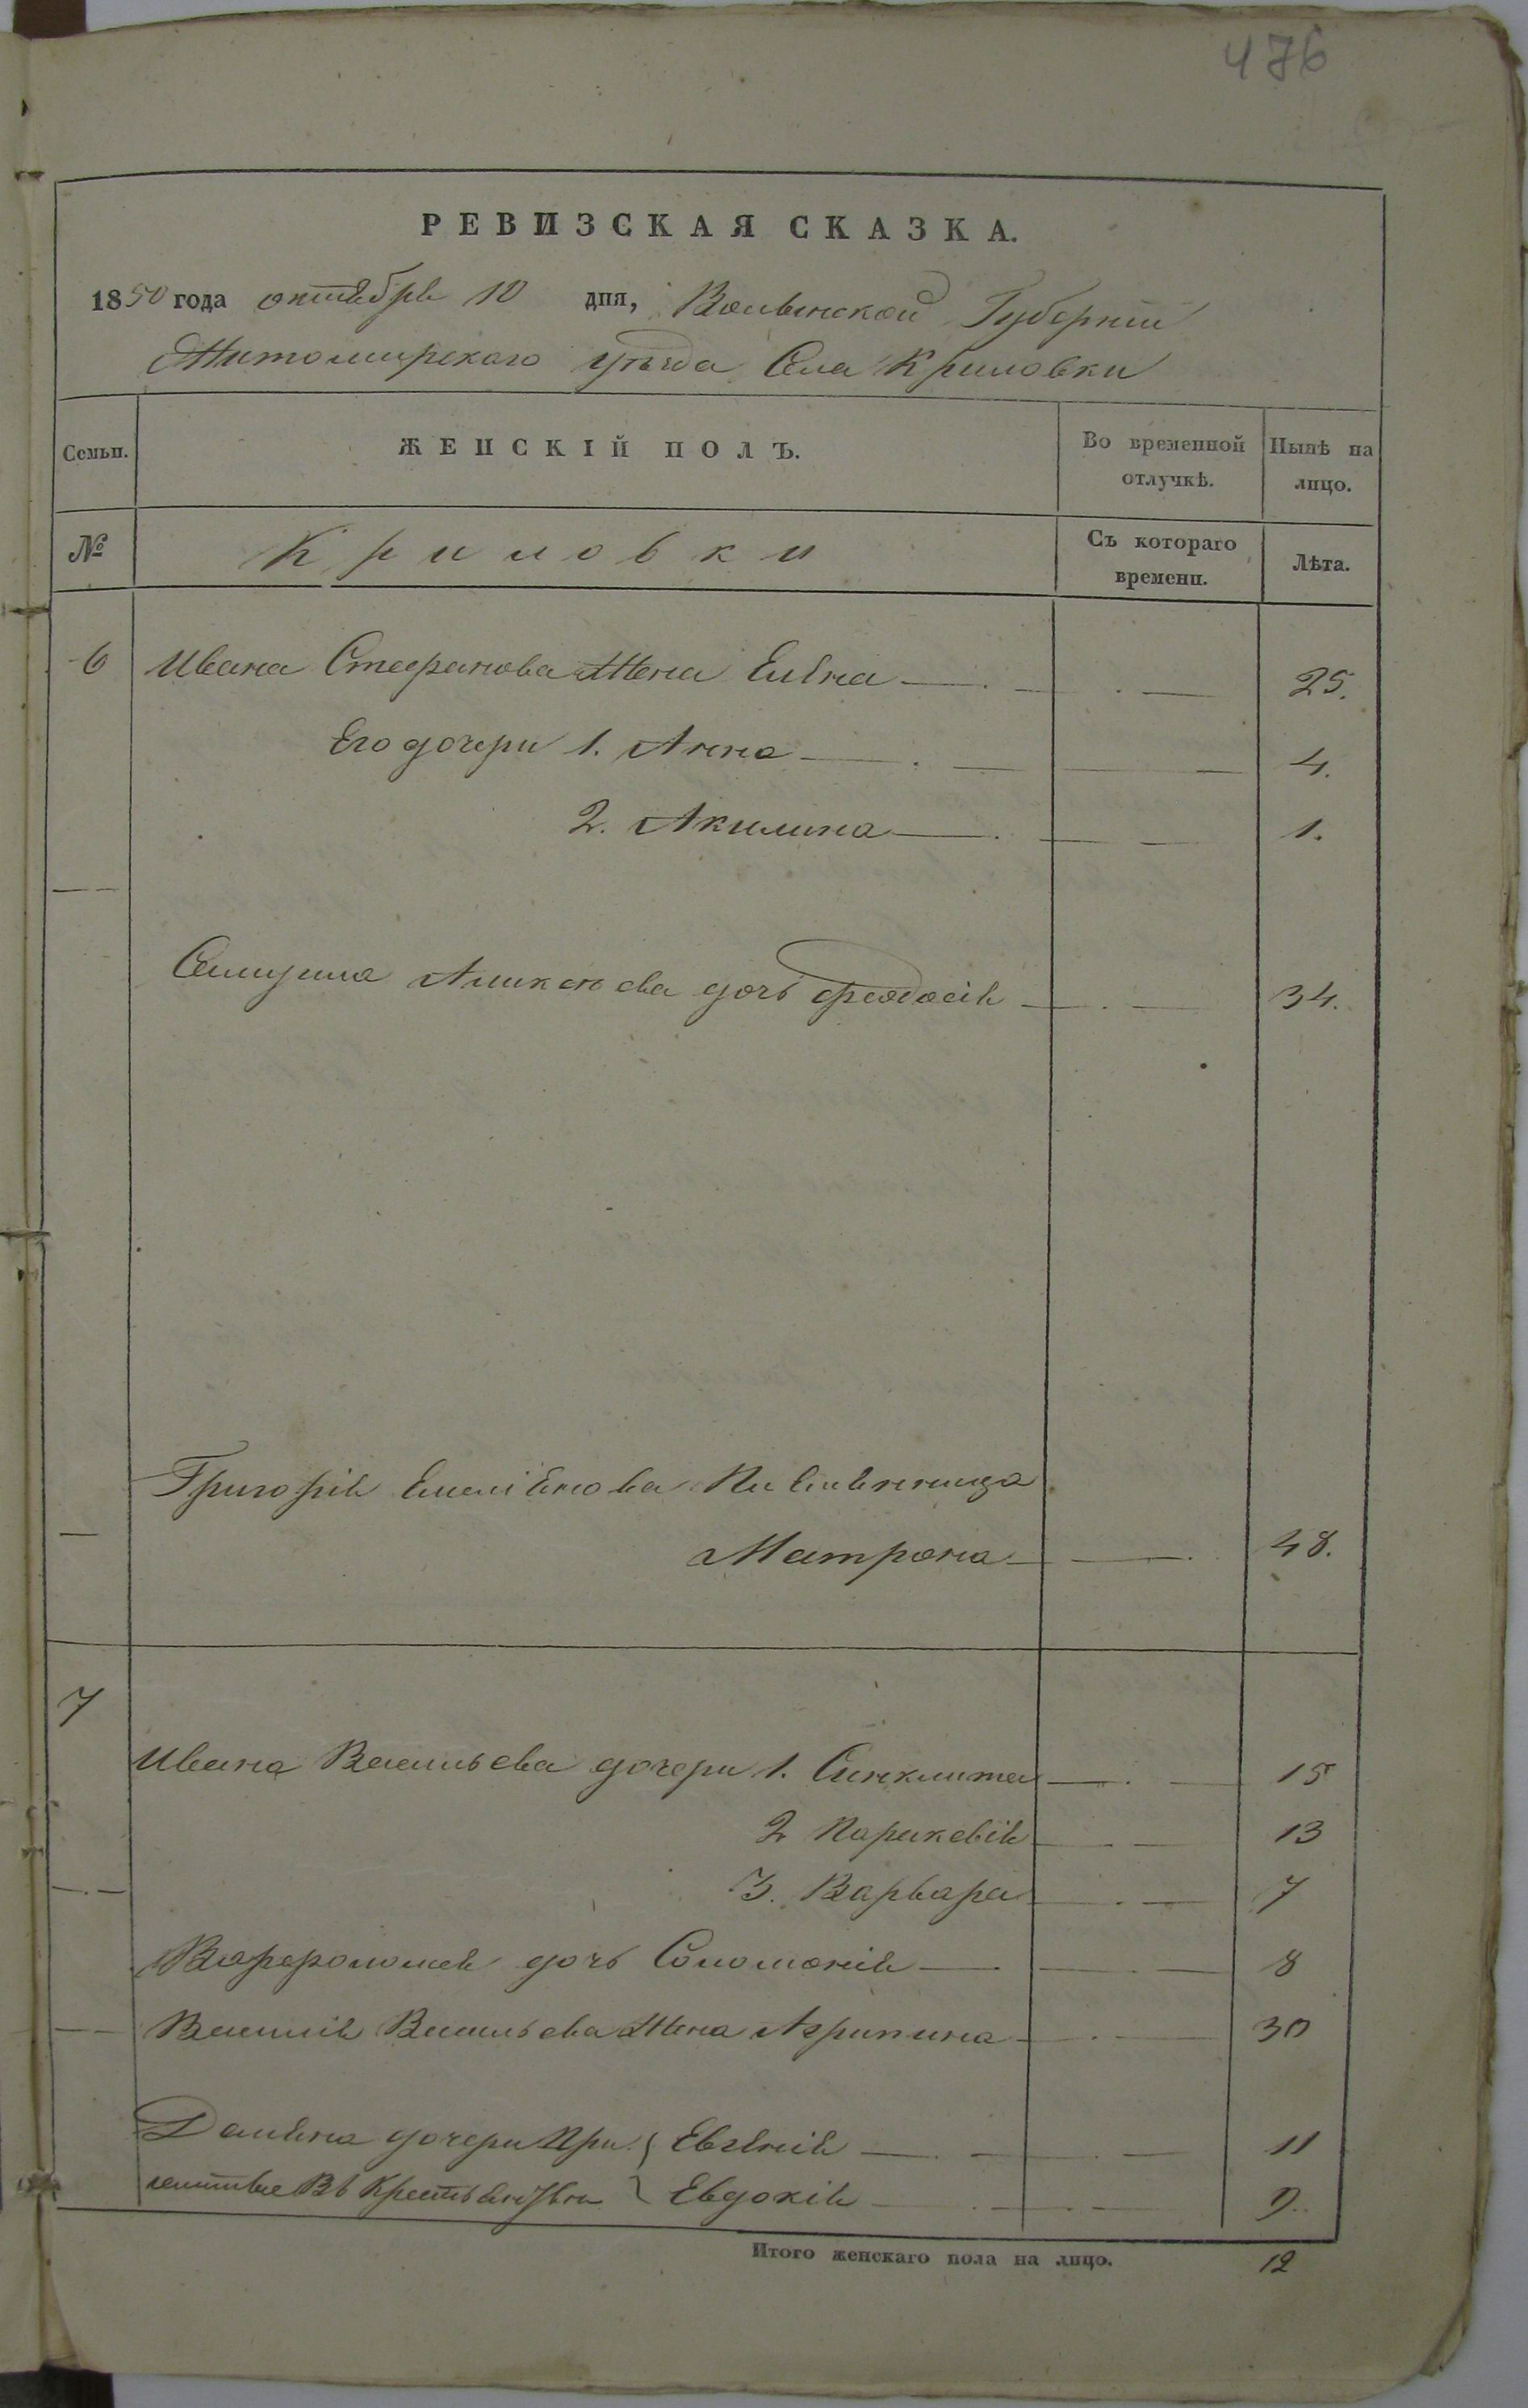 476
РЕВИЗСКАЯ СКАЗКА.
1850 года октября 10 дня, Волынской Губерніи
Житомирскаго уѣзда Села Криловки
Семьи. ЖЕНСКІЙ ПОЛЪ. Во временной отлучкѣ. Нынѣ на лицо.
№ Криловки Съ котораго времени. Лѣта.
6 Ивана Стефанова жена Елена 25.
Его дочери 1. Анна 4.
2. Акилина 1.
Самуила Алексѣева дочь Феодосія 34.
Григорія Емеліянова
Матрона 48.
7
Ивана Васильева дочери 1. Синклита 15
2 Параскевія 13
3. Варвара 7
Варфоломея дочь Соломонія 8
Василія Васильева жена Агрипина 30
Даміяна дочери При { Евгенія 11
Евдокія 9.
Итого женскаго пола на лицо. 12